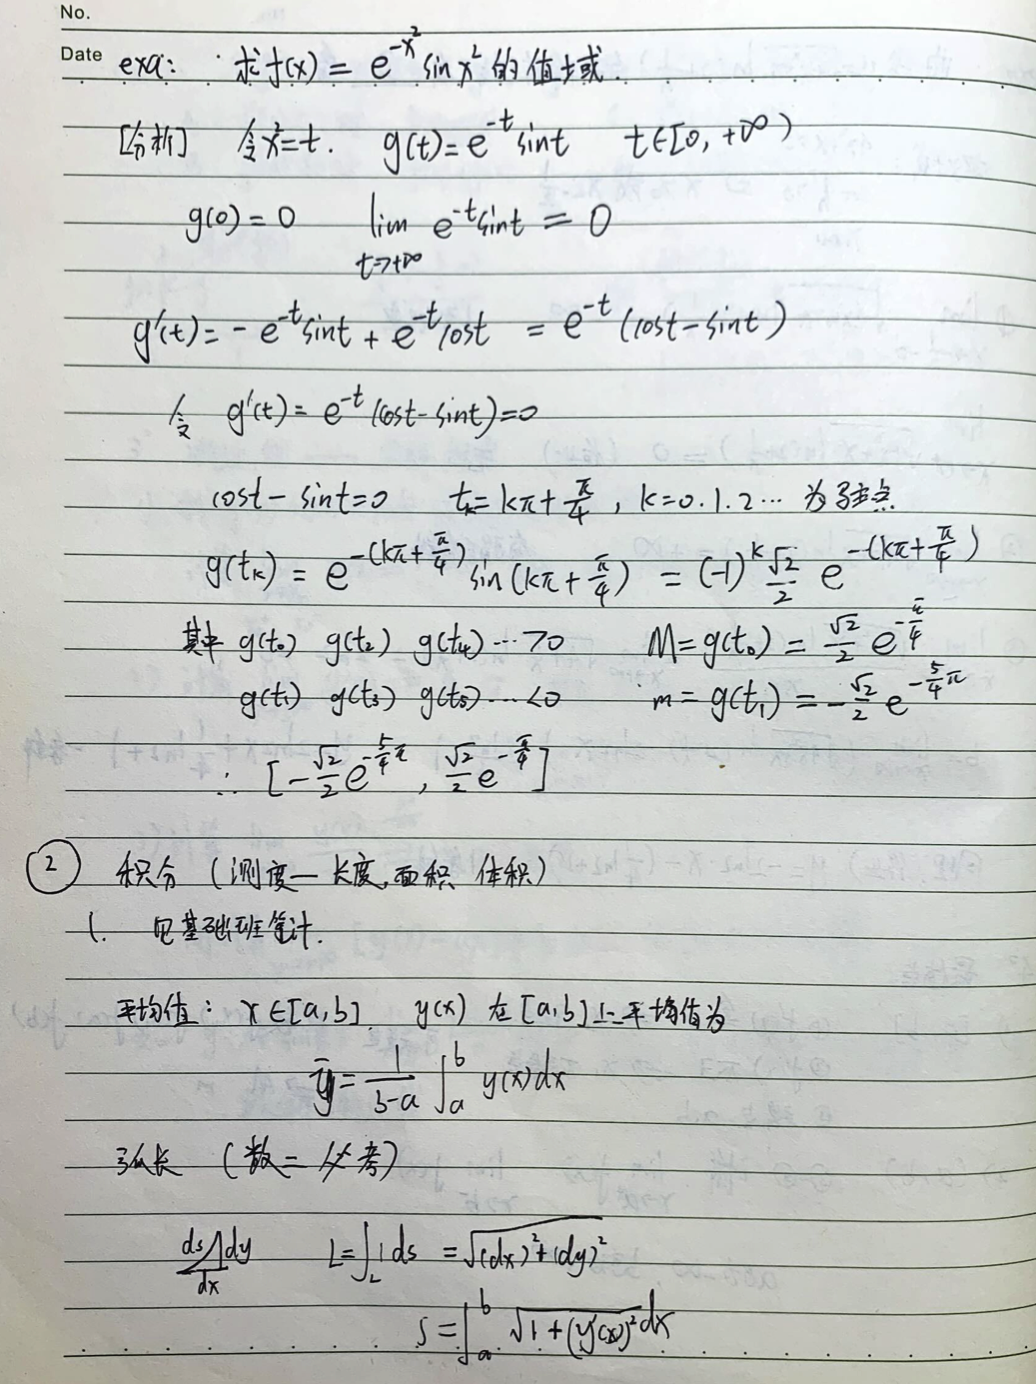 No.
Date exa: 求f(x) = e^{-x^2} sin x^2 的值域
[分析] 令x^2=t. g(t)=e^{-t}sint t∈[0,+∞)
g(0)=0 lim_{t→+∞} e^{-t}sint = 0
g'(t)= - e^{-t}sint + e^{-t}cost = e^{-t}(cost-sint)
令 g'(t) = e^{-t}(cost-sint)=0
cost-sint=0 t_k=kπ+π/4, k=0.1.2... 为驻点
g(t_k) = e^{-(kπ+π/4)} sin(kπ+π/4) = (-1)^k √2/2 e^{-(kπ+π/4)}
其中 g(t_0) g(t_2) g(t_4)...>0 M=g(t_0) = √2/2 e^{-π/4}
g(t_1) g(t_3) g(t_5)...<0 m=g(t_1) = -√2/2 e^{-5/4π}
∴ [-√2/2 e^{-5/4π}, √2/2 e^{-π/4}]
② 积分 (测度— 长度,面积 体积)
1. 见基础班笔计.
平均值: x∈[a,b] y(x) 在[a,b]上平均值为
ȳ = 1/(b-a) ∫_a^b y(x)dx
弧长 (数二 必考)
ds dy L=∫_L 1ds = √((dx)^2+(dy)^2)
dx
S = ∫_a^b √(1+(y'(x))^2) dx